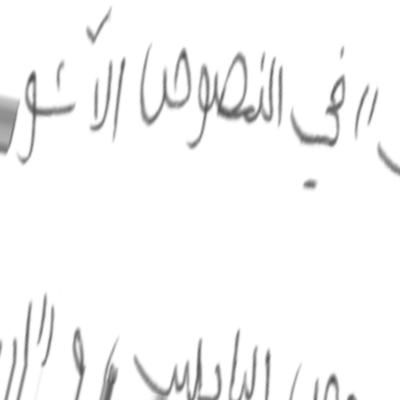 " في النصوص الآشو
وص البابلية و "ال